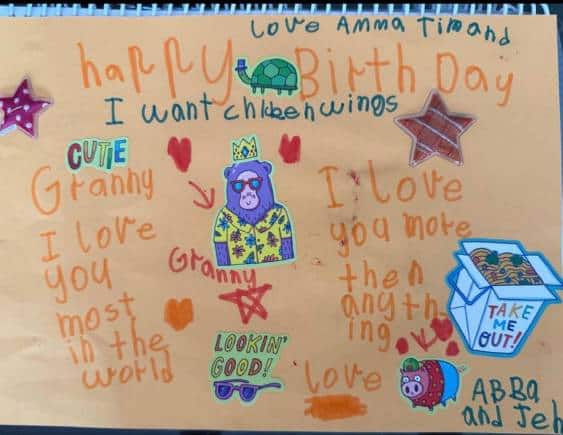 Love Amma Tim and
happy Birth Day
I want chkbenwings
CUTIE
Granny
I love
you
most
in the
world
Granny
LOOKIN'
GOOD!
I love
you more
then
anyth
ing
love
TAKE
ME
OUT!
ABBA
and Jeh